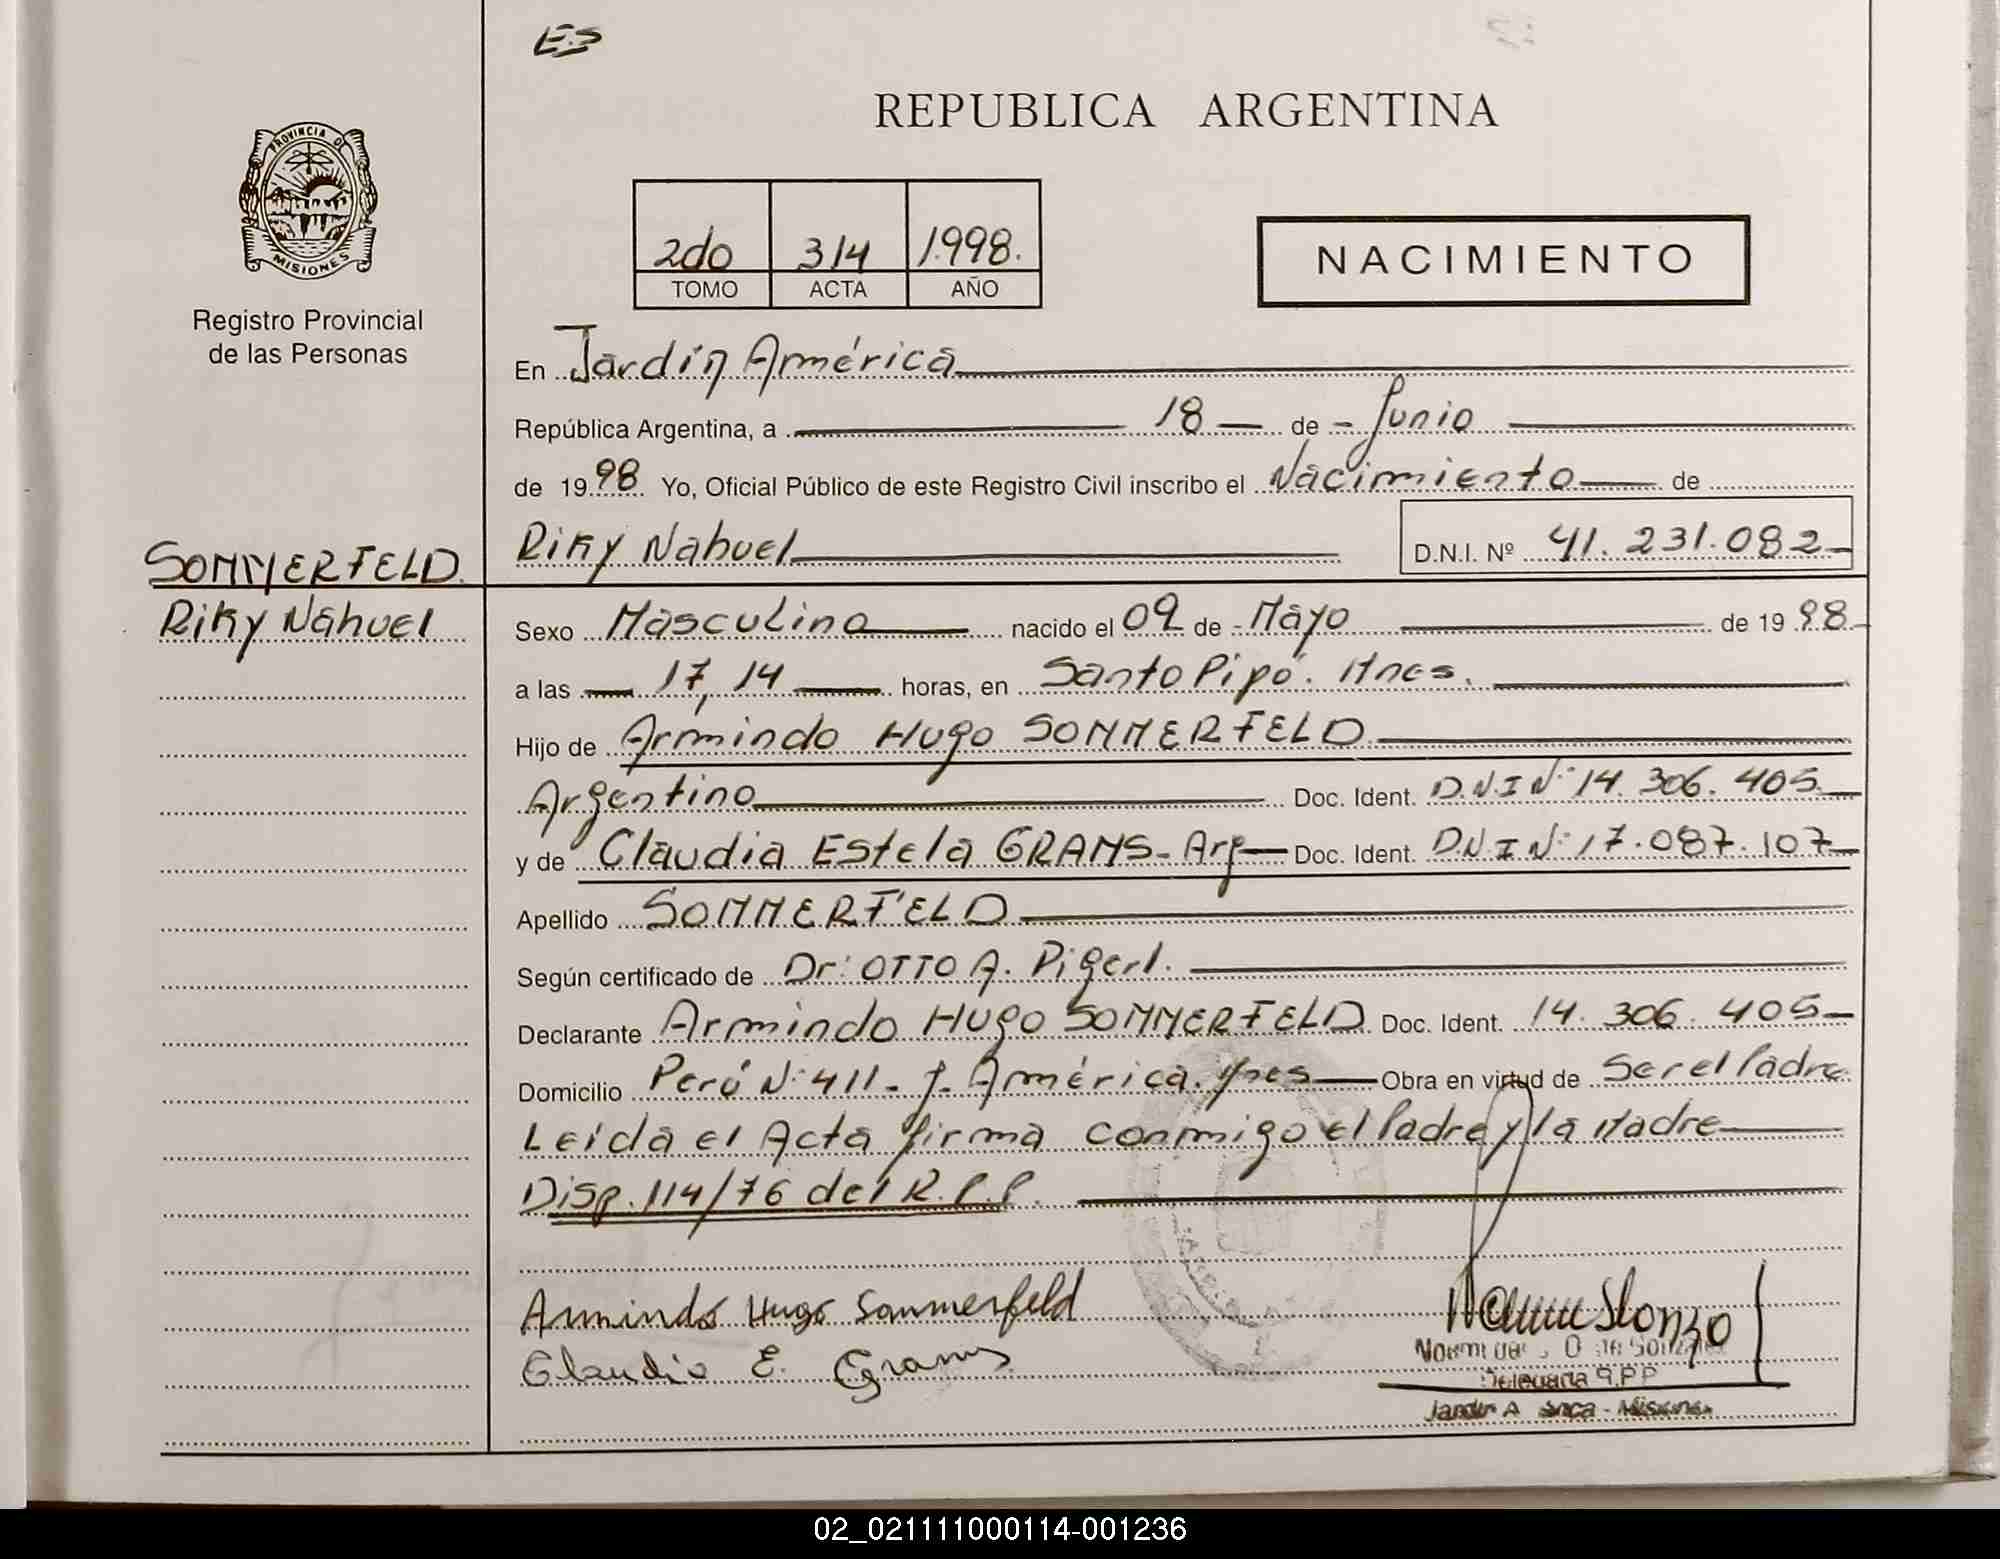 ES
REPUBLICA ARGENTINA
PROVINCIA DE
MISIONES
Registro Provincial
de las Personas
2do 314 1.998.
TOMO ACTA AÑO
NACIMIENTO
En Jardín América
República Argentina, a 18 de Junio
de 1998 Yo, Oficial Público de este Registro Civil inscribo el Nacimiento de
Riky Nahuel D.N.I. Nº 41.231.082
SOMMERFELD.
Riky Nahuel
Sexo Masculino nacido el 09 de Mayo de 1998
a las 17,14 horas, en Santo Pipó. Mnes.
Hijo de Armindo Hugo SOMMERFELD
Argentino Doc. Ident. D.N.I Nº 14.306.405
y de Claudia Estela GRAMS - Arg Doc. Ident. D.N.I Nº 17.087.107
Apellido SOMMERFELD
Según certificado de Dr: OTTO A. Pigerl.
Declarante Armindo Hugo SOMMERFELD Doc. Ident. 14.306.405
Domicilio Perú Nº 411 - J. América. Mnes Obra en virtud de Ser el Padre
Leída el Acta firma conmigo el Padre y la Madre
Disp. 114/76 del R.P.P.
Armindo Hugo Sommerfeld
Claudia E. Grams
Delegada R.P.P
Misiones
02_021111000114-001236